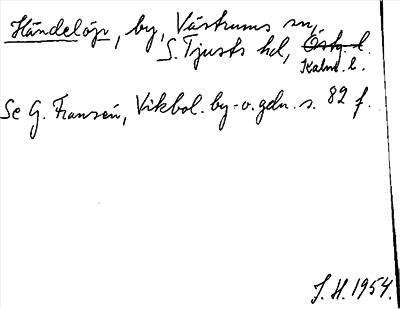 Händelöp, by, Västrums sn,
S. Tjusts hd, Östg. l.
Kalm. l.
Se G. Franzén, Vikbol. by- o. gdn. s. 82 f.
S. H. 1954.